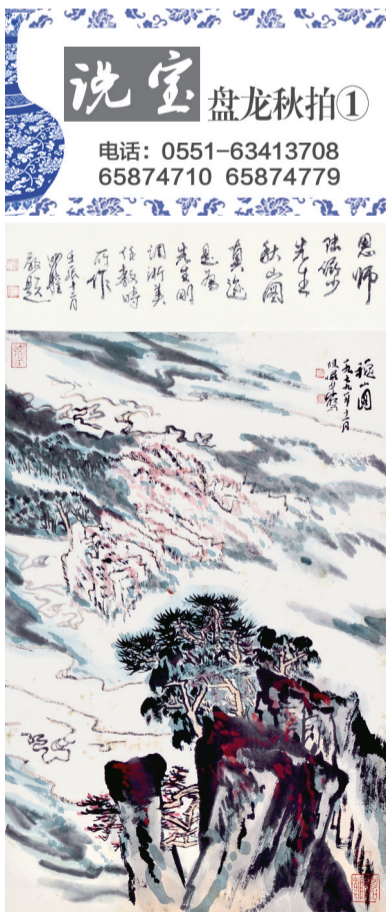 说宝 盘龙秋拍①
电话：0551-63413708
65874710 65874779
恩师
陆俨少
先生
秋山图
真迹
是为
先生刚
调浙美
任教时
所作
壬辰十二月
敬题
秋山图
一九七九年十二月
陆俨少